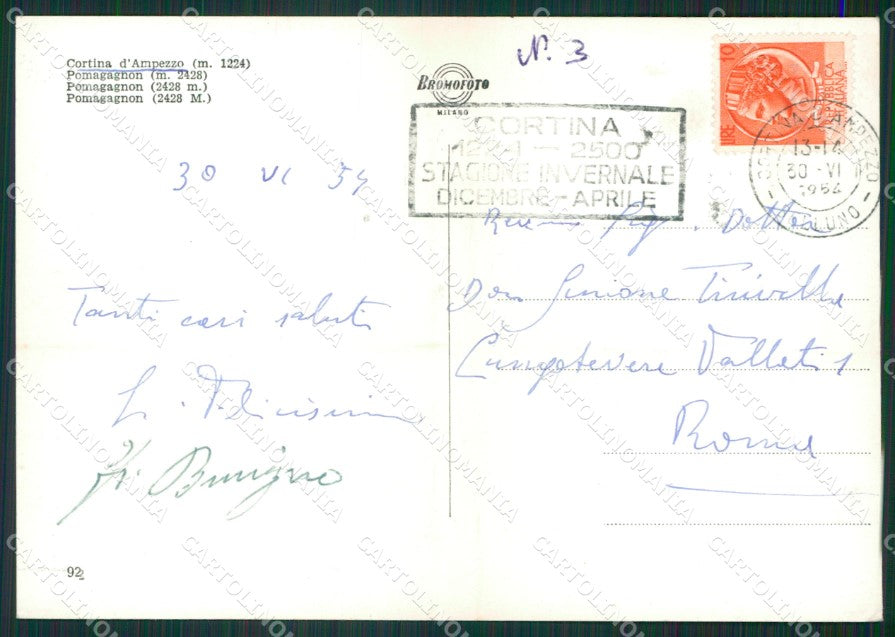 Cortina d'Ampezzo (m. 1224)
Pomagagnon (m. 2428)
Pomagagnon (2428 m.)
Pomagagnon (2428 M.)
N. 3
BROMOFOTO
MILANO
CORTINA
- 2500
STAGIONE INVERNALE
DICEMBRE - APRILE
10
LIRE
REPUBBLICA
ITALIANA
CORTINA D'AMPEZZO
13-14
30 - VI
1954
BELLUNO
30 VI 54
Tanti cari saluti
Don Simone
Lungotevere Vallati 1
Roma
92
CARTOLINOMANIA